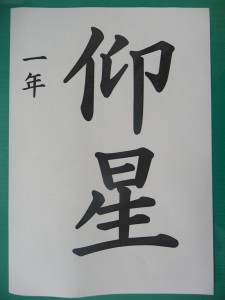 仰星
一年